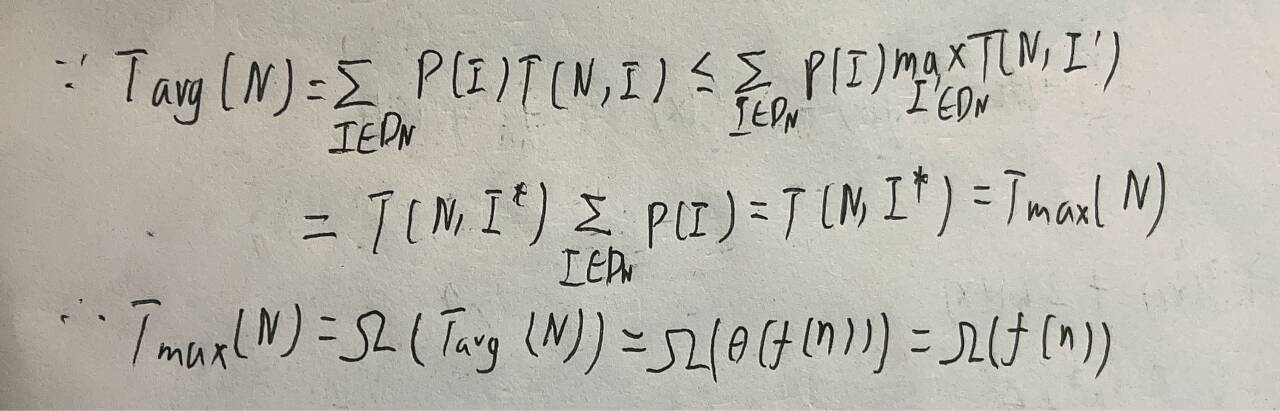 ∵ Tavg(N)=∑_{I∈D_N} P(I)T(N,I) ≤ ∑_{I∈D_N} P(I)max_{I'∈D_N} T(N,I')
= T(N,I*) ∑_{I∈D_N} P(I) = T(N,I*) = Tmax(N)
∴ Tmax(N)=Ω(Tavg(N))=Ω(θ(f(n)))=Ω(f(n))